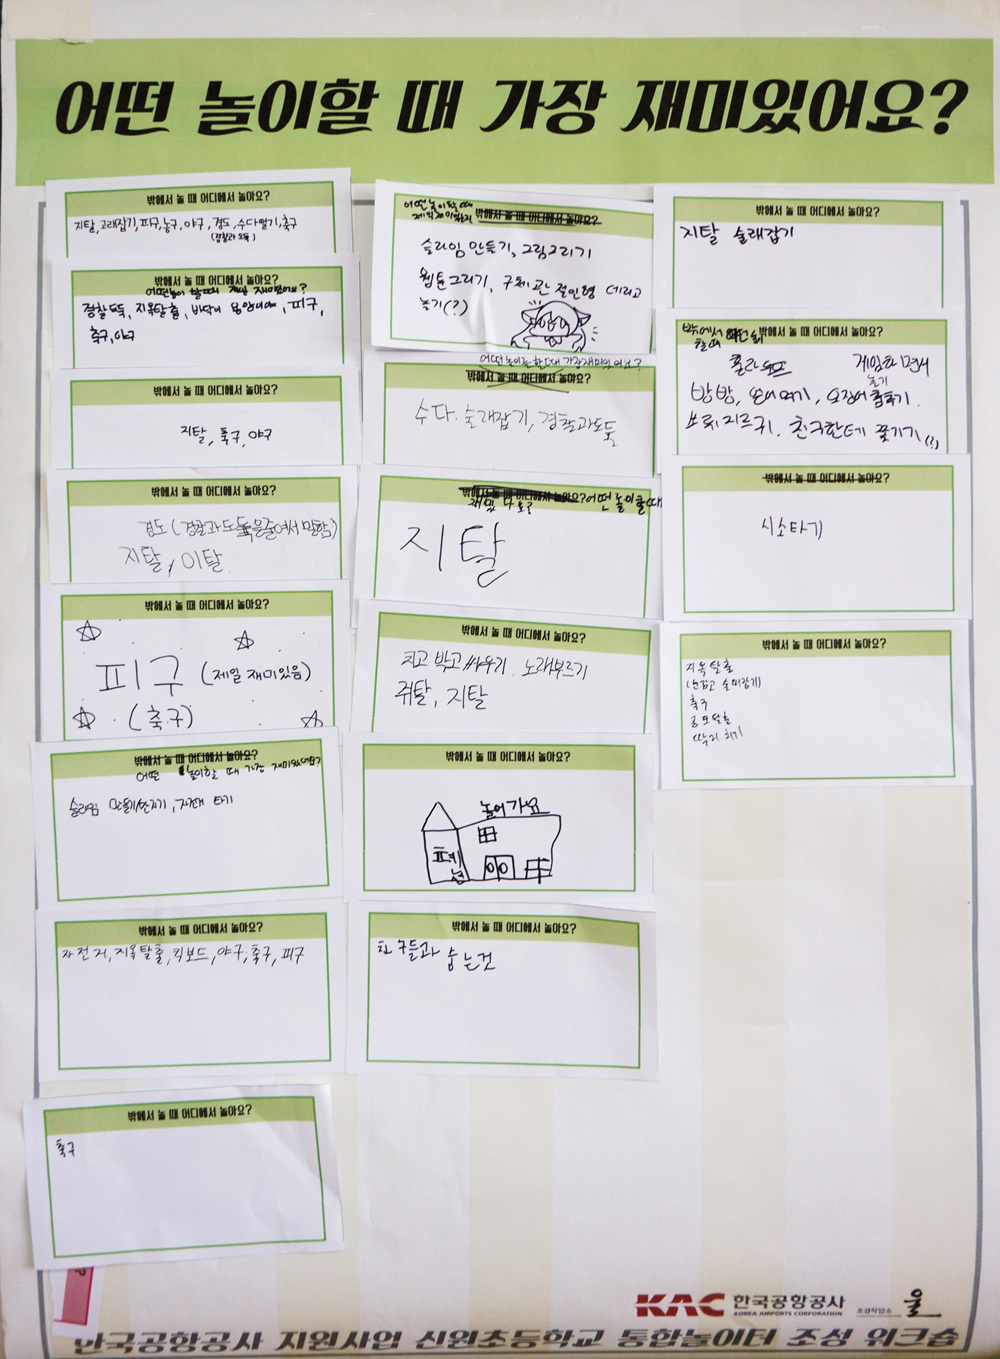 어떤 놀이할 때 가장 재미있어요?
밖에서 놀 때 어디에서 놀아요?
지탈, 고래잡기, 피구, 농구, 야구, 경도, 수다떨기, 축구
(경찰과 도둑)
밖에서 놀 때 어디에서 놀아요?
어떤놀이 할때 제일 재미있어요?
경찰도둑, 지옥탈출, 바닥에 피구,
축구, 야구
밖에서 놀 때 어디에서 놀아요?
지탈, 축구, 야구
밖에서 놀 때 어디에서 놀아요?
경도 (경찰과 도둑을 줄여서 말함)
지탈, 이탈
밖에서 놀 때 어디에서 놀아요?
피구 (제일 재미있음)
(축구)
밖에서 놀 때 어디에서 놀아요?
어떤 놀이할 때 가장 재미있어요?
슬라임 만들기/만지기, 자전거 타기
밖에서 놀 때 어디에서 놀아요?
자전거, 지옥탈출, 킥보드, 야구, 축구, 피구
밖에서 놀 때 어디에서 놀아요?
축구
어떤놀이할때
밖에서 놀 때 어디에서 놀아요?
슬라임 만들기, 그림그리기
웹툰그리기, 구체관절인형 데리고
놀기(?)
어떤놀이를할때 가장재미있어요?
밖에서 놀 때 어디에서 놀아요?
수다. 술래잡기, 경찰과도둑
밖에서 놀 때 어디에서 놀아요? 어떤 놀이할때
지탈
밖에서 놀 때 어디에서 놀아요?
치고 박고 싸우기, 노래부르기
쥐탈, 지탈
밖에서 놀 때 어디에서 놀아요?
놀러가요
밖에서 놀 때 어디에서 놀아요?
친구들과 숨는것
밖에서 놀 때 어디에서 놀아요?
지탈 술래잡기
밖에서 놀 때 어디에서 놀아요?
게임하면서
놀기
방방, 오징어 춤추기.
소리지르기, 친구한테 쫓기기(!)
밖에서 놀 때 어디에서 놀아요?
시소타기
밖에서 놀 때 어디에서 놀아요?
지옥탈출
(눈감고 술래잡기)
축구
딱지 치기
KAC 한국공항공사
KOREA AIRPORTS CORPORATION
조경작업소 울
한국공항공사 지원사업 신원초등학교 통합놀이터 조성 워크숍